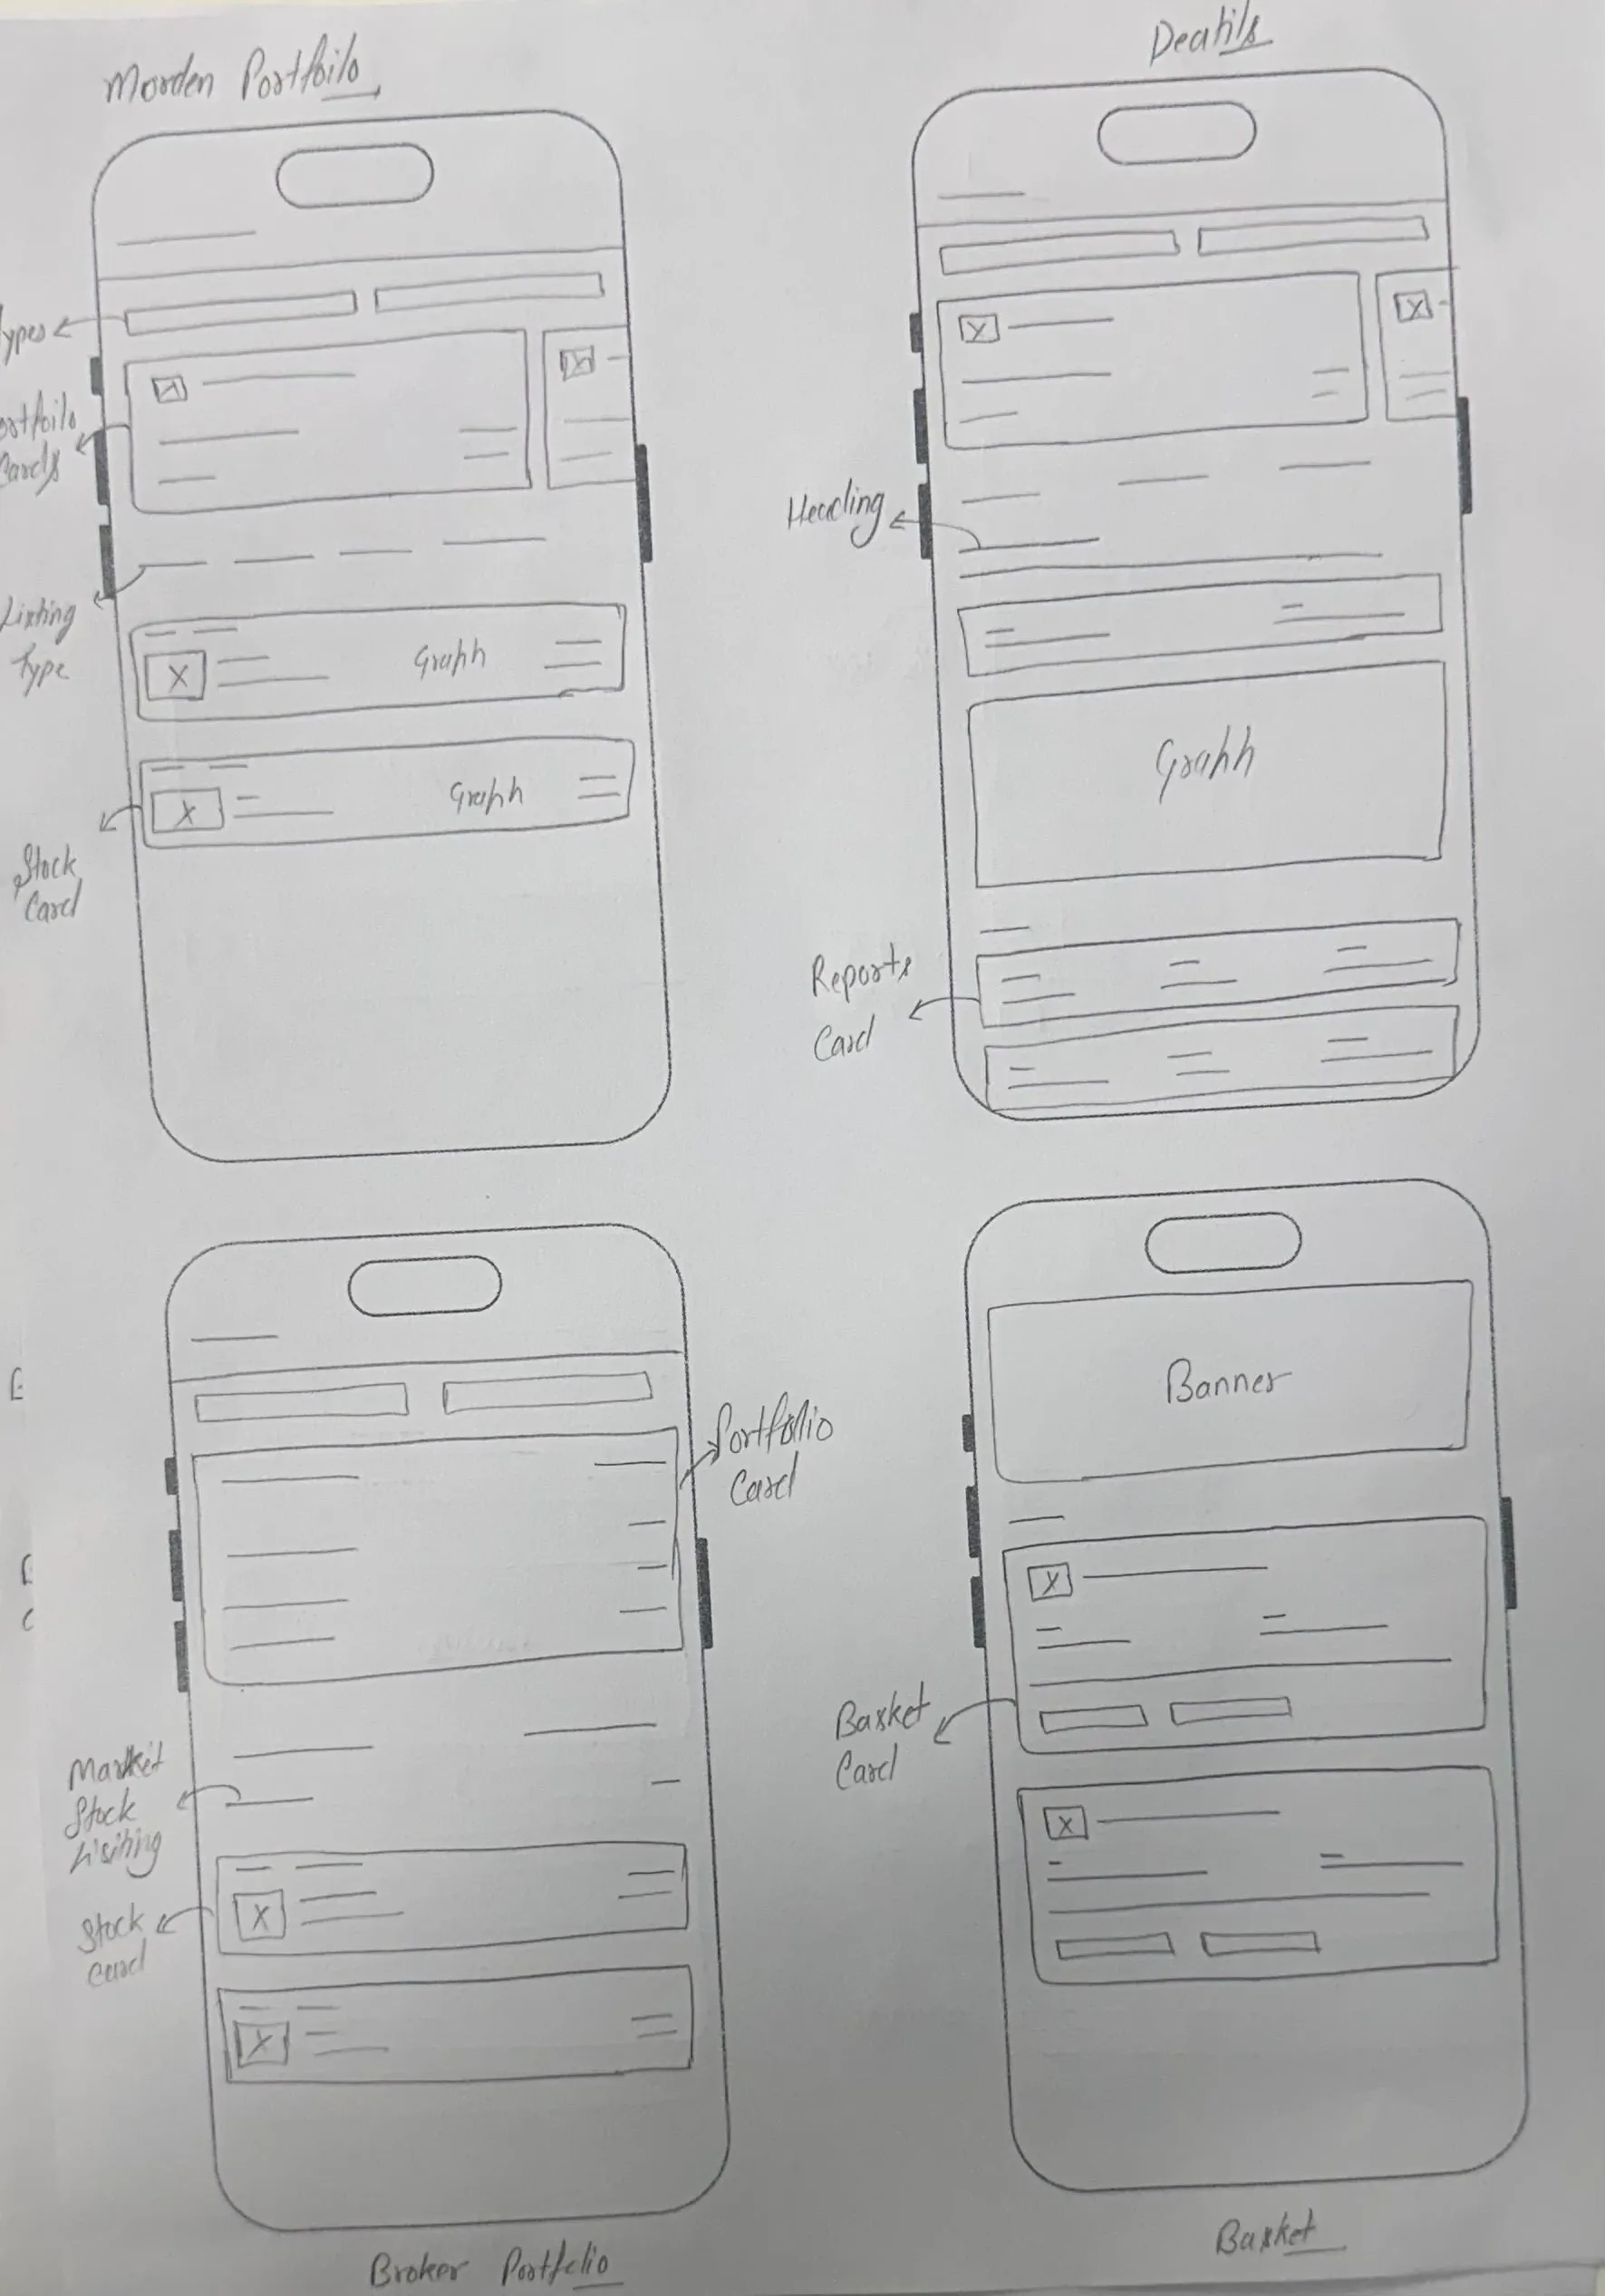 Morden Portfoilo
Deatils
ypes
ortfoilo
Cards
Listing
Type
Graph
Graph
Stock
Card
Heading
Graph
Reports
Card
Portfolio
Card
Market
Stock
Lisiting
Stock
Card
Broker Portfolio
Banner
Basket
Card
Basket